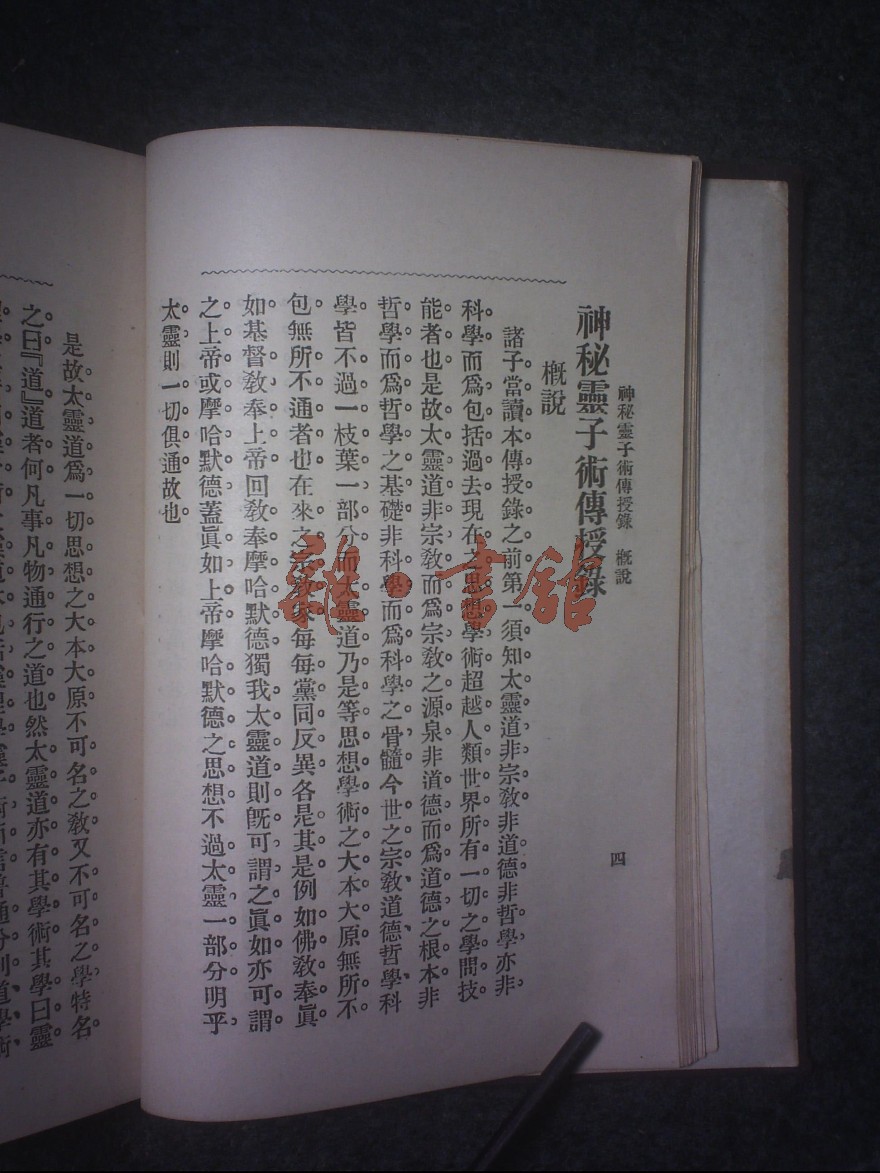 神秘靈子術傳授錄　概說
四
神秘靈子術傳授錄
概說
諸子當讀本傳授錄之前第一須知太靈道非宗敎非道德非哲學亦非
科學而爲包括過去現在之思想學術超越人類世界所有一切之學問技
能者也是故太靈道非宗敎而爲宗敎之源泉非道德而爲道德之根本非
哲學而爲哲學之基礎非科學而爲科學之骨髓今世之宗敎道德哲學科
學皆不過一枝葉一部分而太靈道乃是等思想學術之大本大原無所不
包無所不通者也在來之宗敎家每每黨同反異各是其是例如佛敎奉眞
如基督敎奉上帝回敎奉摩哈默德獨我太靈道則旣可謂之眞如亦可謂
之上帝或摩哈默德蓋眞如上帝摩哈默德之思想不過太靈一部分明乎
太靈則一切俱通故也
是故太靈道爲一切思想之大本大原不可名之敎又不可名之學特名
之曰『道』道者何凡事凡物通行之道也然太靈道亦有其學術其學曰靈
雜·書館